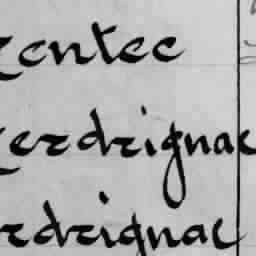 rentec
rerdrignac
rdrignac